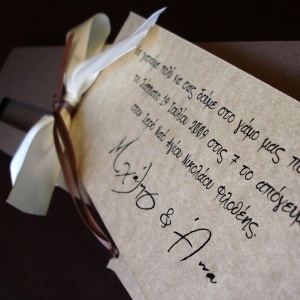 θα χαρούμε πολύ να σας δούμε στο γάμο μας το
το Σάββατο 19 Ιουλίου 2009 στις 7 το απόγευμα
στον Ιερό Ναό Αγίου Νικολάου Φιλοθέης.
Μιχάλης
& Άννα